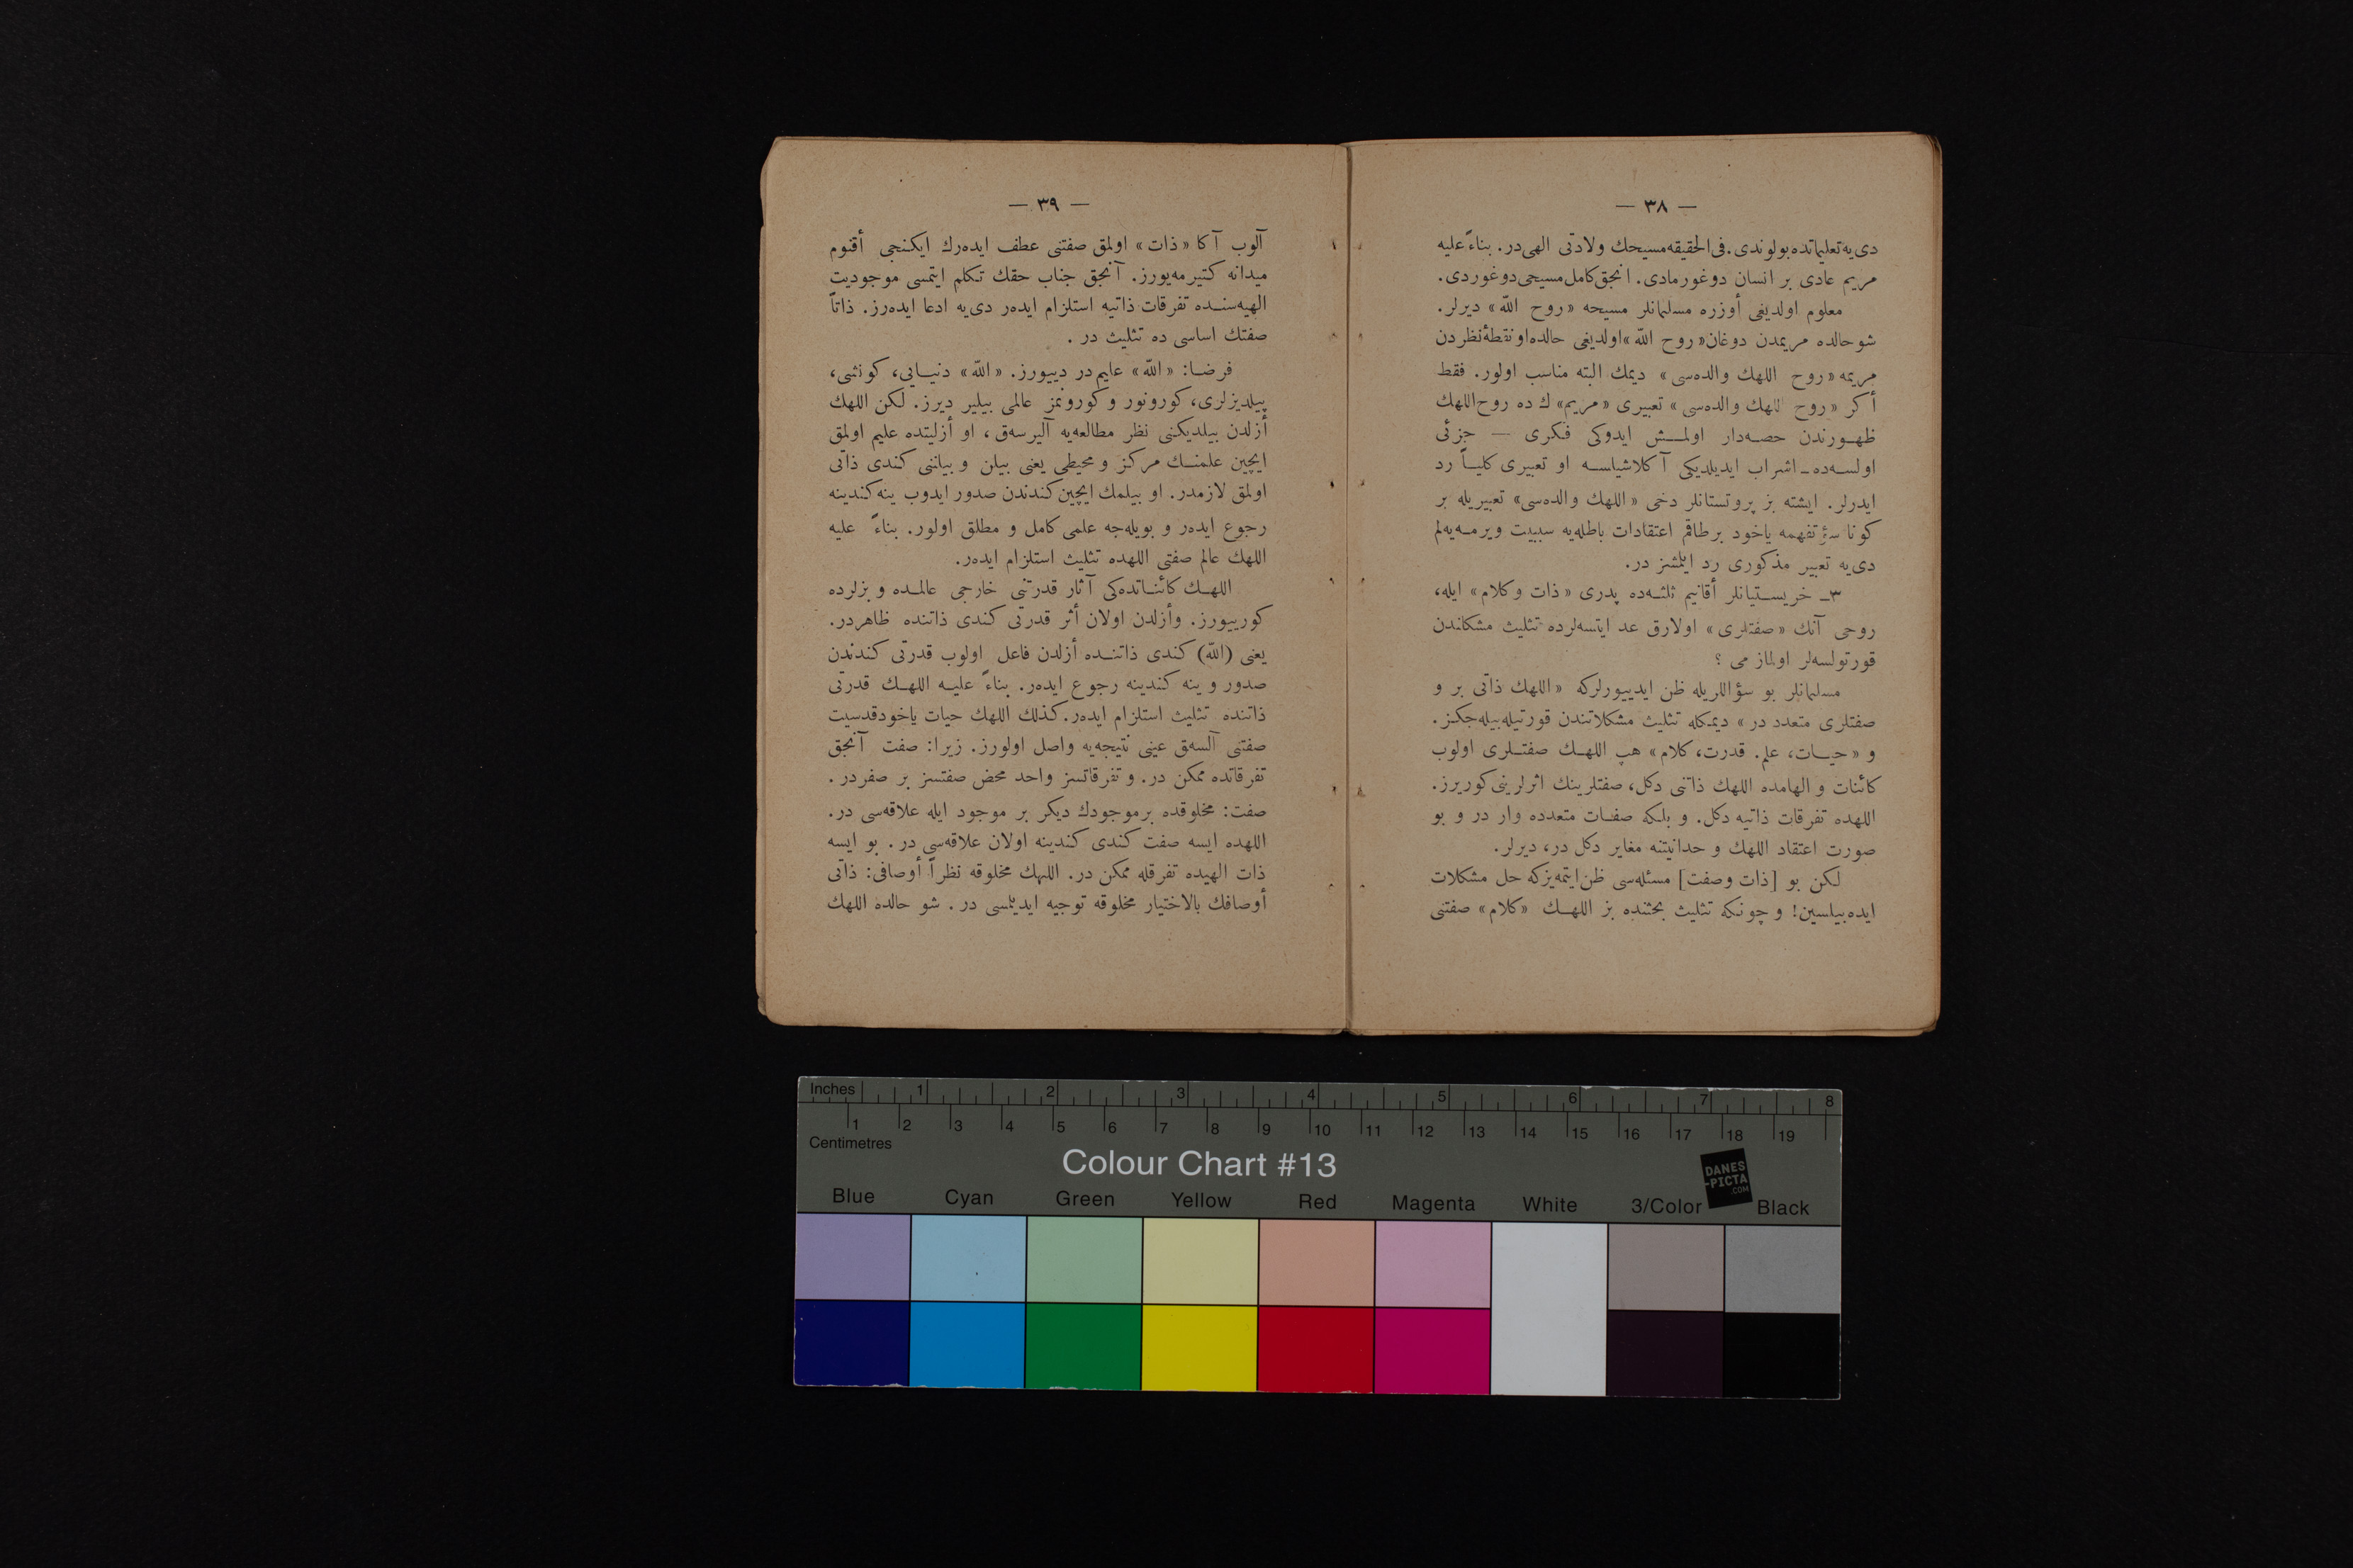 — ٣٨ —
دی‌یه تعلیماتده بولوندی. فی‌الحقیقه مسیحك ولادتی الهی‌در. بناءً علیه
مریم عادی بر انسان دوغورمادی. انجق كامل مسیحی دوغوردی.
معلوم اولدیغی أوزره مسلمانلر مسیحه «روح اللّٰه» دیرلر.
شو حالده مریمدن دوغان «روح اللّٰه» اولدیغی حالده او نقطهٔ نظردن
مریمه «روح اللهك والده‌سی» دیمك البته مناسب اولور. فقط
أكر «روح اللهك والده‌سی» تعبیری «مریم» ك ده روح اللهك
ظهـورندن حصـه‌دار اولمـش ایدوكی فكری — جزئی
اولسـه‌ده ـ اشراب ایدیلدیكی آكلاشیلسـه او تعبیری كلیـاً رد
ایدرلر. ایشته بز پروتستانلر دخی «اللهك والده‌سی» تعبیریله بر
كونا سؤ تفهمه یاخود برطاقم اعتقادات باطله‌یه سببیت ویرمـه‌یه‌لم
دی‌یه تعبیر مذكوری رد ایلمشز در.
٣ـ خریسـتیانلر أقانیم ثلثـه‌ده پدری «ذات و كلام» ایله،
روحی آنك «صفتلری» اولارق عد ایتسه‌لرده تثلیث مشكلندن
قورتولسه‌لر اولماز می ؟
مسلمانلر بو سؤاللریله ظن ایدییورلركه «اللهك ذاتی بر و
صفتلری متعدد در» دیمكله تثلیث مشكلاتندن قورتیله‌بیله‌جكز.
و «حیـات، علم. قدرت، كلام» هپ اللهـك صفتـلری اولوب
كائنات و الهامده اللهك ذاتنی دكل، صفتلرینك اثرلرینی كوریرز.
اللهده تفرقات ذاتیه دكل. و بلكه صفـات متعدده وار در و بو
صورت اعتقاد اللهك و حدانیتنه مغایر دكل در، دیرلر.
لكن بو [ذات وصفت] مسئله‌سی ظن ایتمه‌یزكه حل مشكلات
ایده‌بیلسین! و چونكه تثلیث بحثنده بز اللهـك «كلام» صفتنی
— ٣٩ —
آلوب آكا «ذات» اولمق صفتنی عطف ایده‌رك ایكنجی أقنوم
میدانه كتیرمه‌یورز. آنجق جناب حقك تكلم ایتمسی موجودیت
الهیه‌سنـده تفرقات ذاتیه استلزام ایده‌ر دی‌یه ادعا ایده‌رز. ذاتاً
صفتك اساسی ده تثلیث در .
فرضـا: «اللّٰه» علیم در دییورز. «اللّٰه» دنیـایی، كونشی،
ییلدیزلری، كورونور و كورونمز عالمی بیلیر دیرز. لكن اللهك
أزلدن بیلدیكنی نظر مطالعه‌یه آلیرسه‌ق، او أزلیتده علیم اولمق
ایچین علمنـك مركز و محیطی یعنی بیلن و بیلننی كندی ذاتی
اولمق لازمدر. او بیلمك ایچین كندندن صدور ایدوب ینه كندینه
رجوع ایده‌ر و بویله‌جه علمی كامل و مطلق اولور. بناءً علیه
اللهك عالم صفتی اللهده تثلیث استلزام ایده‌ر.
اللهـك كائنـاتده‌كی آثار قدرتنی خارجی عالمـده و بزلرده
كورییورز. وأزلدن اولان أثر قدرتی كندی ذاتنده ظاهردر.
یعنی (اللّٰه) كندی ذاتنـده أزلدن فاعل اولوب قدرتی كندندن
صدور و ینه كندینه رجوع ایده‌ر. بناءً علیـه اللهـك قدرتی
ذاتنده تثلیث استلزام ایده‌ر. كذلك اللهك حیات یاخود قدسیت
صفتنی آلسه‌ق عینی نتیجه‌یه واصل اولورز. زیرا: صفت آنجق
تفرقاتده ممكن در. و تفرقاتسز واحد محض صفتسز بر صفردر.
صفت: مخلوقده برموجودك دیكر بر موجود ایله علاقه‌سی در.
اللهده ایسه صفت كندی كندینه اولان علاقه‌سی در. بو ایسه
ذات الهیده تفرقله ممكن در. اللهك مخلوقه نظراً أوصافی: ذاتی
أوصافك بالاختیار مخلوقه توجیه ایدیلمسی در. شو حالده اللهك
Inches 1 2 3 4 5 6 7 8
1 2 3 4 5 6 7 8 9 10 11 12 13 14 15 16 17 18 19
Centimetres
Colour Chart #13
DANES
-PICTA
.COM
Blue Cyan Green Yellow Red Magenta White 3/Color Black